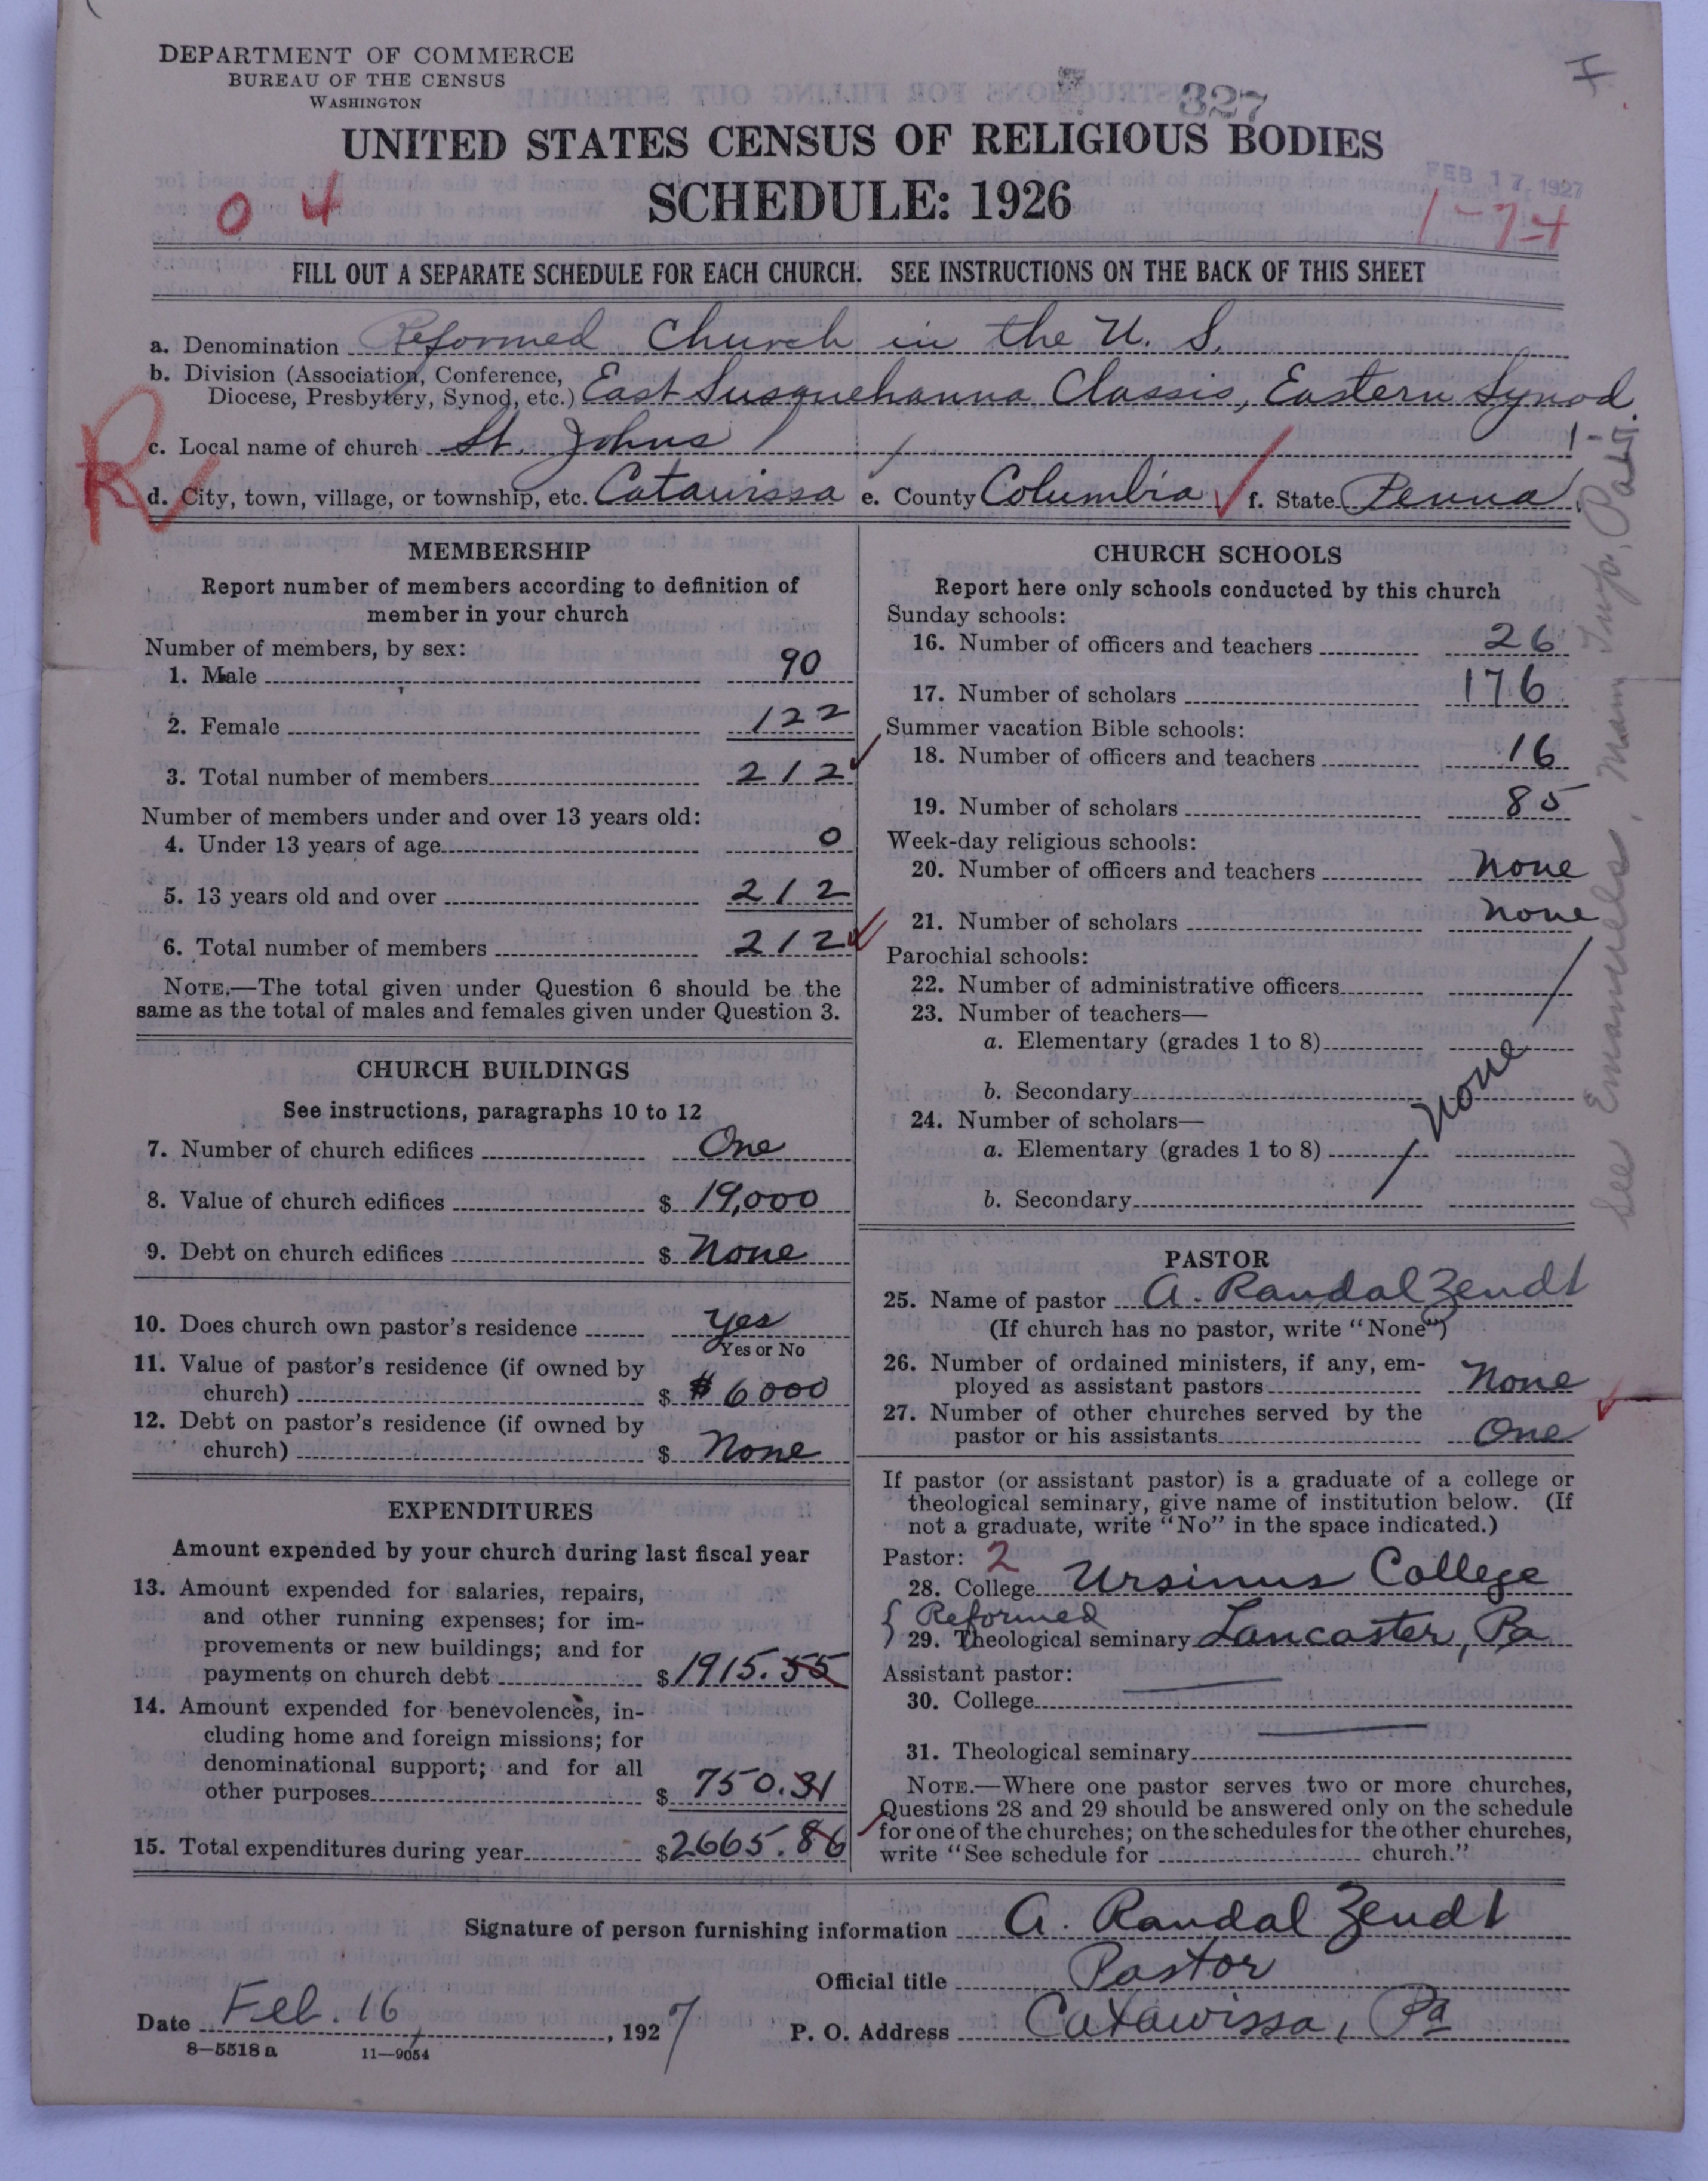 DEPARTMENT OF COMMERCE
BUREAU OF THE CENSUS
WASHINGTON
327
UNITED STATES CENSUS OF RELIGIOUS BODIES
SCHEDULE: 1926
FEB 17 1927
0 4
1-74
FILL OUT A SEPARATE SCHEDULE FOR EACH CHURCH. SEE INSTRUCTIONS ON THE BACK OF THIS SHEET
a. Denomination Reformed Church in the U. S.
b. Division (Association, Conference,
Diocese, Presbytery, Synod, etc.) East Susquehanna Classis, Eastern Synod.
c. Local name of church St. Johns
d. City, town, village, or township, etc. Catawissa e. County Columbia f. State Penna.
R
MEMBERSHIP
Report number of members according to definition of
member in your church
Number of members, by sex:
1. Male 90
2. Female 122
3. Total number of members 212
Number of members under and over 13 years old:
4. Under 13 years of age 0
5. 13 years old and over 212
6. Total number of members 212
NOTE.—The total given under Question 6 should be the
same as the total of males and females given under Question 3.
CHURCH BUILDINGS
See instructions, paragraphs 10 to 12
7. Number of church edifices One
8. Value of church edifices $ 19,000
9. Debt on church edifices $ None
10. Does church own pastor's residence Yes
Yes or No
11. Value of pastor's residence (if owned by
church) $ $ 6000
12. Debt on pastor's residence (if owned by
church) $ None
EXPENDITURES
Amount expended by your church during last fiscal year
13. Amount expended for salaries, repairs,
and other running expenses; for im-
provements or new buildings; and for
payments on church debt $ 1915.55
14. Amount expended for benevolences, in-
cluding home and foreign missions; for
denominational support; and for all
other purposes $ 750.31
15. Total expenditures during year $ 2665.86
CHURCH SCHOOLS
Report here only schools conducted by this church
Sunday schools:
16. Number of officers and teachers 26
17. Number of scholars 176
Summer vacation Bible schools:
18. Number of officers and teachers 16
19. Number of scholars 85
Week-day religious schools:
20. Number of officers and teachers None
21. Number of scholars None
Parochial schools:
22. Number of administrative officers
23. Number of teachers—
a. Elementary (grades 1 to 8)
b. Secondary
None
24. Number of scholars—
a. Elementary (grades 1 to 8)
b. Secondary
PASTOR
25. Name of pastor A. Randal Zendt
(If church has no pastor, write "None")
26. Number of ordained ministers, if any, em-
ployed as assistant pastors None
27. Number of other churches served by the
pastor or his assistants One
If pastor (or assistant pastor) is a graduate of a college or
theological seminary, give name of institution below. (If
not a graduate, write "No" in the space indicated.)
Pastor: 2
28. College Ursinus College
Reformed
29. Theological seminary Lancaster, Pa
Assistant pastor:
30. College
31. Theological seminary
NOTE.—Where one pastor serves two or more churches,
Questions 28 and 29 should be answered only on the schedule
for one of the churches; on the schedules for the other churches,
write "See schedule for church."
See Emanuels, Main Twp.
Signature of person furnishing information A. Randal Zendt
Official title Pastor
Date Feb. 16, 1927 P. O. Address Catawissa, Pa
8—5518 a 11—9054